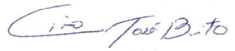 Ciro José Brito